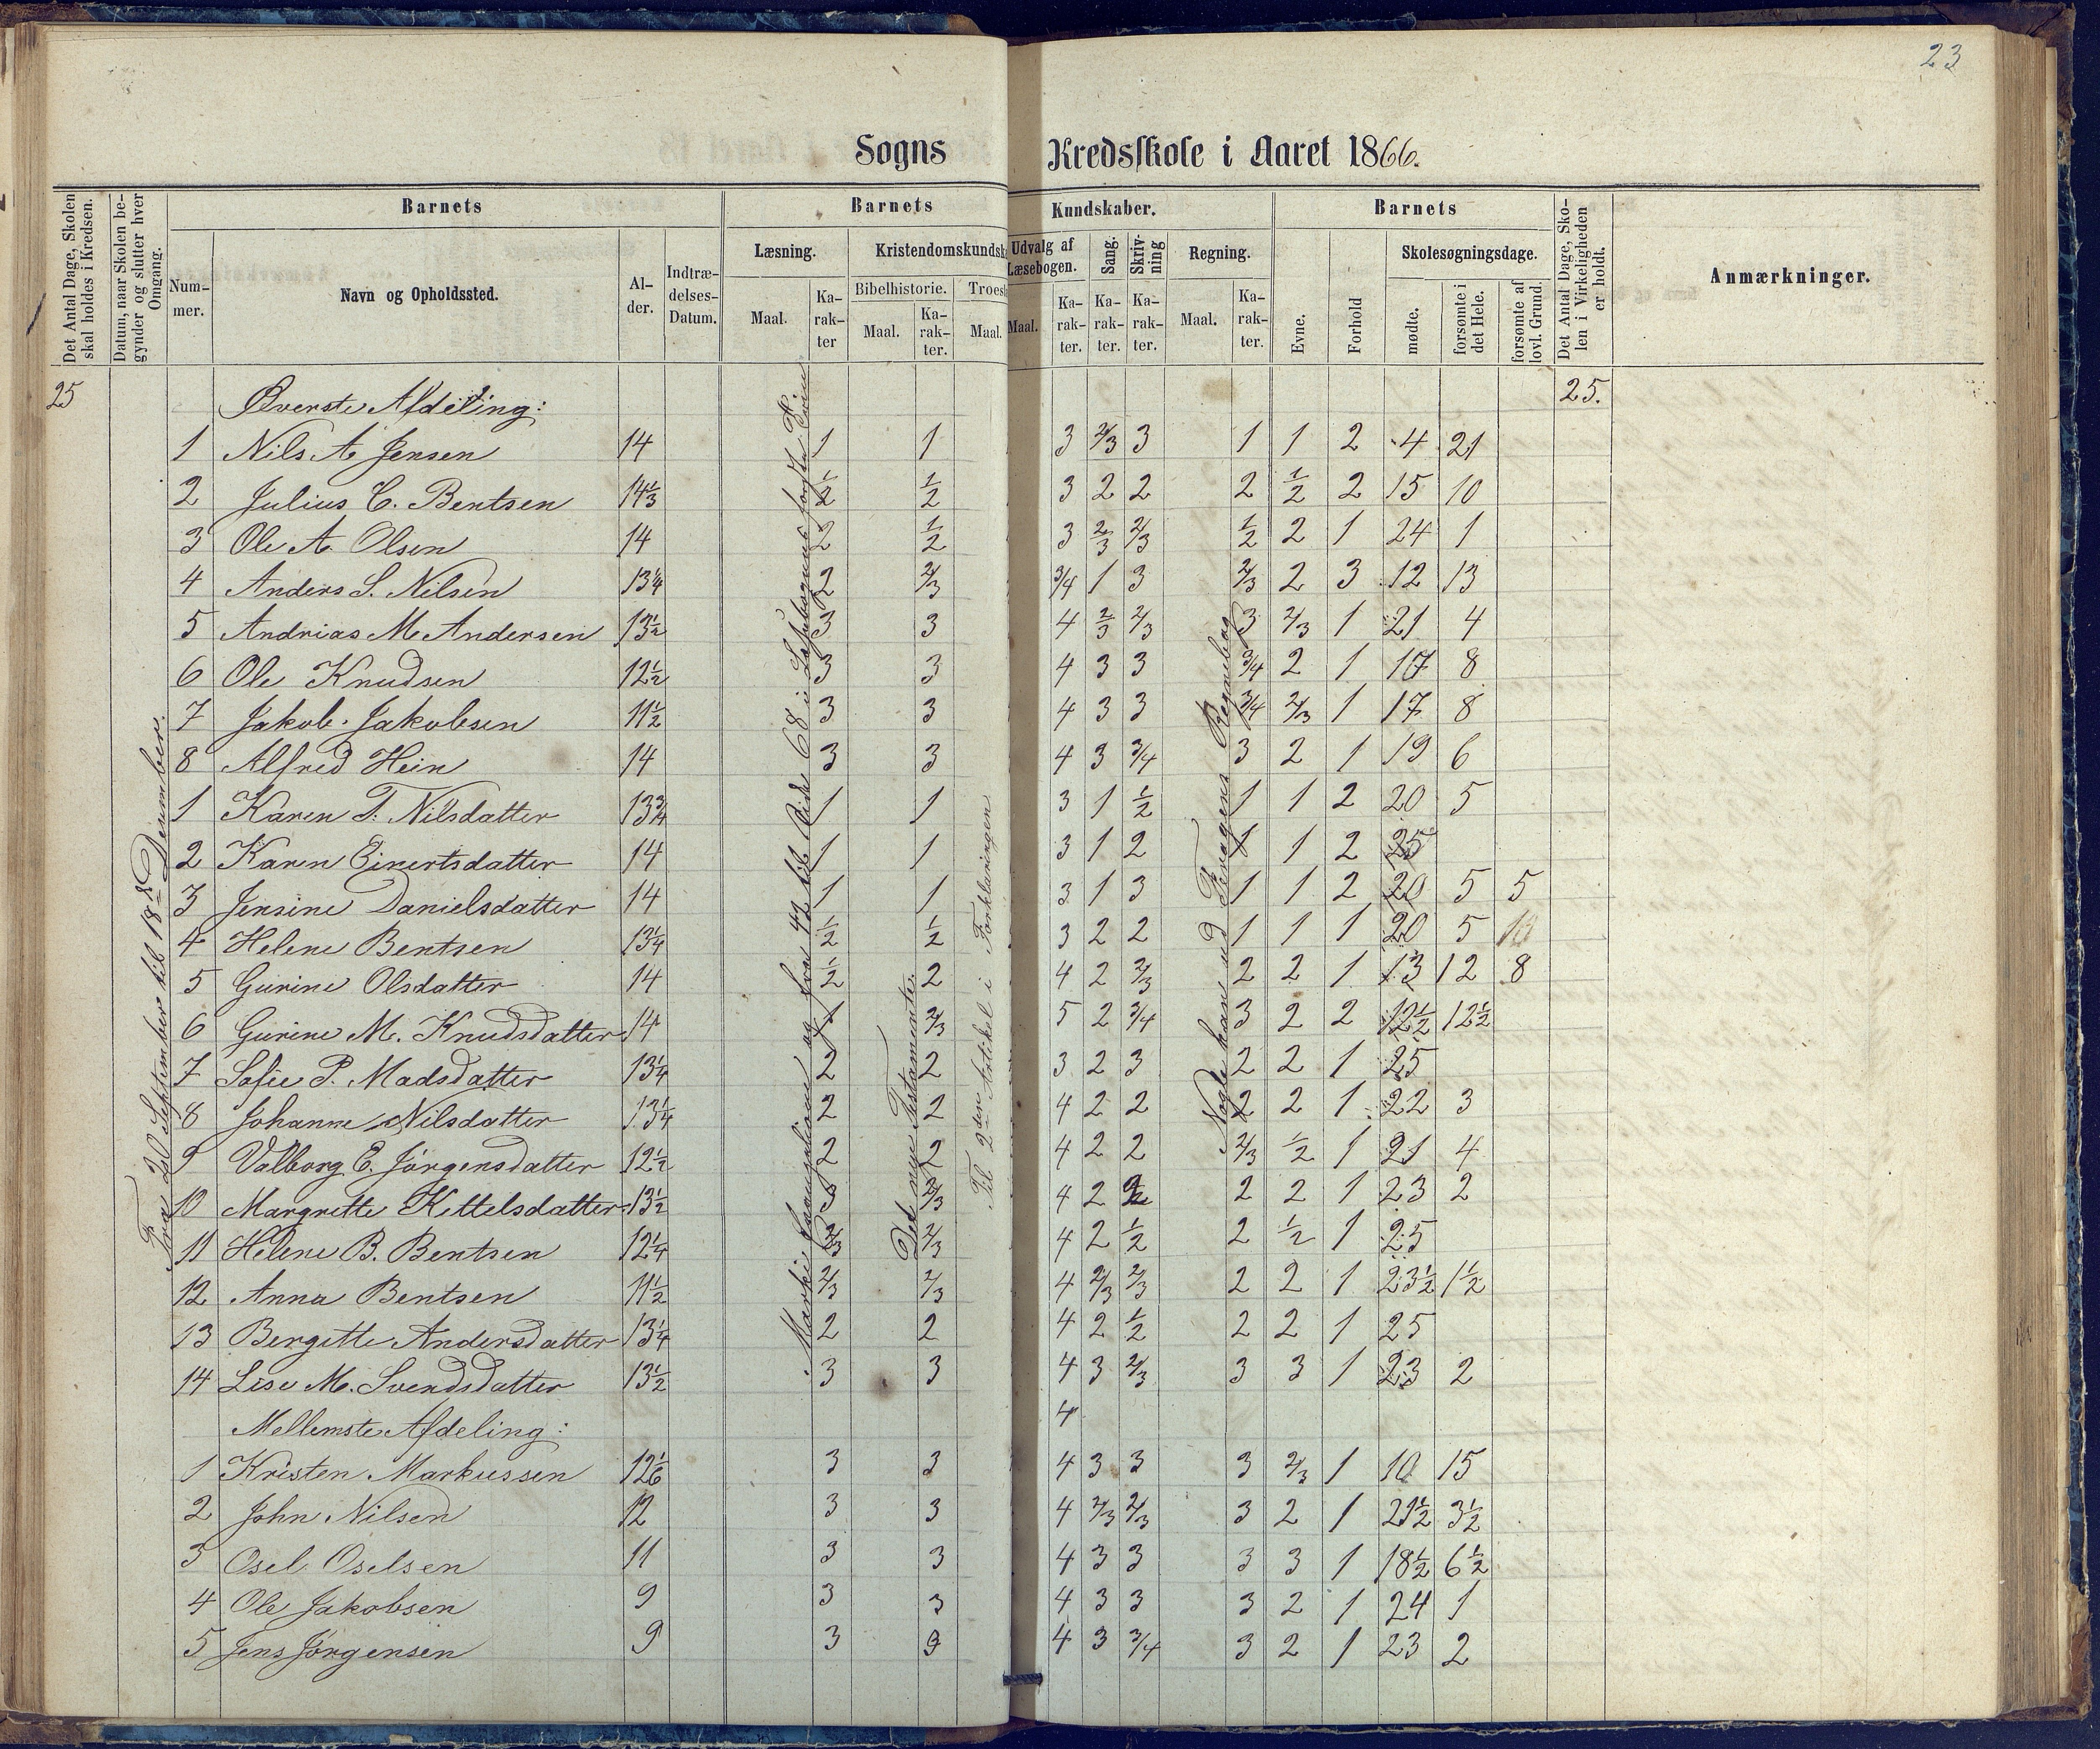 23
Sogns Kredsskole i Aaret 1866.
Det Antal Dage, Skolen skal holdes i Kredsen.
Datum, naar Skolen begynder og slutter hver Omgang.
Barnets
Nummer.
Navn og Opholdssted.
Alder.
Indtrædelses-Datum.
Barnets Kundskaber.
Læsning.
Maal.
Karakter
Kristendomskundsk
Bibelhistorie.
Maal.
Karakter.
Troesl
Maal.
Udvalg af Læsebogen.
Maal.
Karakter.
Sang.
Karakter.
Skrivning
Karakter.
Regning.
Maal.
Karakter.
Barnets
Evne.
Forhold
Skolesøgningsdage.
mødte.
forsømte i det Hele.
forsømte af lovl. Grund.
Det Antal Dage, Skolen i Virkeligheden er holdt.
Anmærkninger.
25 Øverste Afdeling: 25.
1 Nils A Jensen 14 1 1 3 2/3 3 1 1 2 4 21
2 Julius C. Bentsen 14 1/3 1/2 1/2 3 2 2 2 1/2 2 15 10
3 Ole A. Olsen 14 2 1/2 3 2/3 2/3 1/2 2 1 24 1
4 Anders S. Nilsen 13 1/4 2 2/3 3/4 1 3 2/3 2 3 12 13
5 Andrias M Andersen 13 1/2 3 3 4 2/3 2/3 3 2/3 1 21 4
6 Ole Knudsen 12 1/2 3 3 4 3 3 3/4 2 1 17 8
7 Jakob Jakobsen 11 1/2 3 3 4 3 3 3/4 2/3 1 17 8
8 Alfred Hein 14 3 3 4 3 3/4 3 2 1 19 6
1 Karen T. Nilsdatter 13 3/4 1 1 3 1 1/2 1 1 2 20 5
2 Karen Einertsdatter 14 1 1 3 1 2 1 1 2 25
3 Jensine Danielsdatter 14 1 1 3 1 3 1 1 2 20 5 5
4 Helene Bentsen 13 1/4 1/2 1/2 3 2 2 1 1 1 20 5 10
5 Gurine Olsdatter 14 1/2 2 4 2 2/3 2 2 1 13 12 8
6 Gurine M. Knudsdatter 14 1 2/3 5 2 3/4 3 2 2 12 1/2 12 1/2
7 Sofie P. Madsdatter 13 1/4 2 2 3 2 3 2 2 1 25
8 Johanne Nilsdatter 13 1/4 2 2 4 2 2 2 2 1 22 3
9 Valborg E. Jørgensdatter 12 1/2 2 2 4 2 2 2/3 1/2 1 21 4
10 Margrette Kittelsdatter 13 1/2 3 2/3 4 2 2 2 2 1 23 2
11 Helene B. Bentsen 12 1/4 2/3 2/3 4 2 1/2 2 1/2 1 25
12 Anna Bentsen 11 1/2 2/3 2/3 4 2/3 2/3 2 2 1 23 1/2 1 1/2
13 Bergitte Andersdatter 13 1/4 2 2 4 2 1/2 2 2 1 25
14 Lise M. Svendsdatter 13 1/2 3 3 4 3 2/3 3 3 1 23 2
Mellemste Afdeling: 4
1 Kristen Markussen 12 1/6 3 3 4 3 3 3 2/3 1 10 15
2 John Nilsen 12 3 3 4 2/3 2/3 3 2 1 21 1/2 3 1/2
3 Osel Oselsen 11 3 3 4 3 3 3 3 1 18 1/2 6 1/2
4 Ole Jakobsen 9 3 3 4 3 3 3 2 1 24 1
5 Jens Jørgensen 9 3 3 4 3 3/4 3 2 1 23 2
Fra 20 September til 18de Desember.
Marki Evangelium og fra 42 til Side 68 i Læsebogens første Trin
Det nye Testamente.
Til 2den Artikel i Forklaringen
Nogle kan ud Regnebog